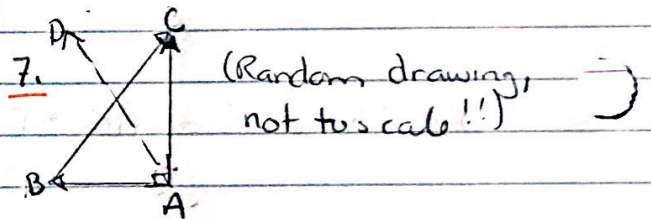 D C
7. (Random drawing,
not to scale!!)
B A